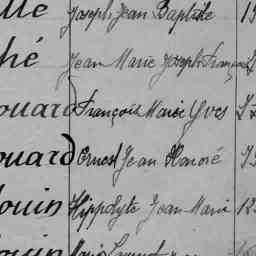 Joseph Jean Baptiste
hé Jean Marie Joseph François
ouard François Marie Yves
ouard Ernest Jean Honoré
ouin Hippolyte Jean Marie 12
ouin Marie